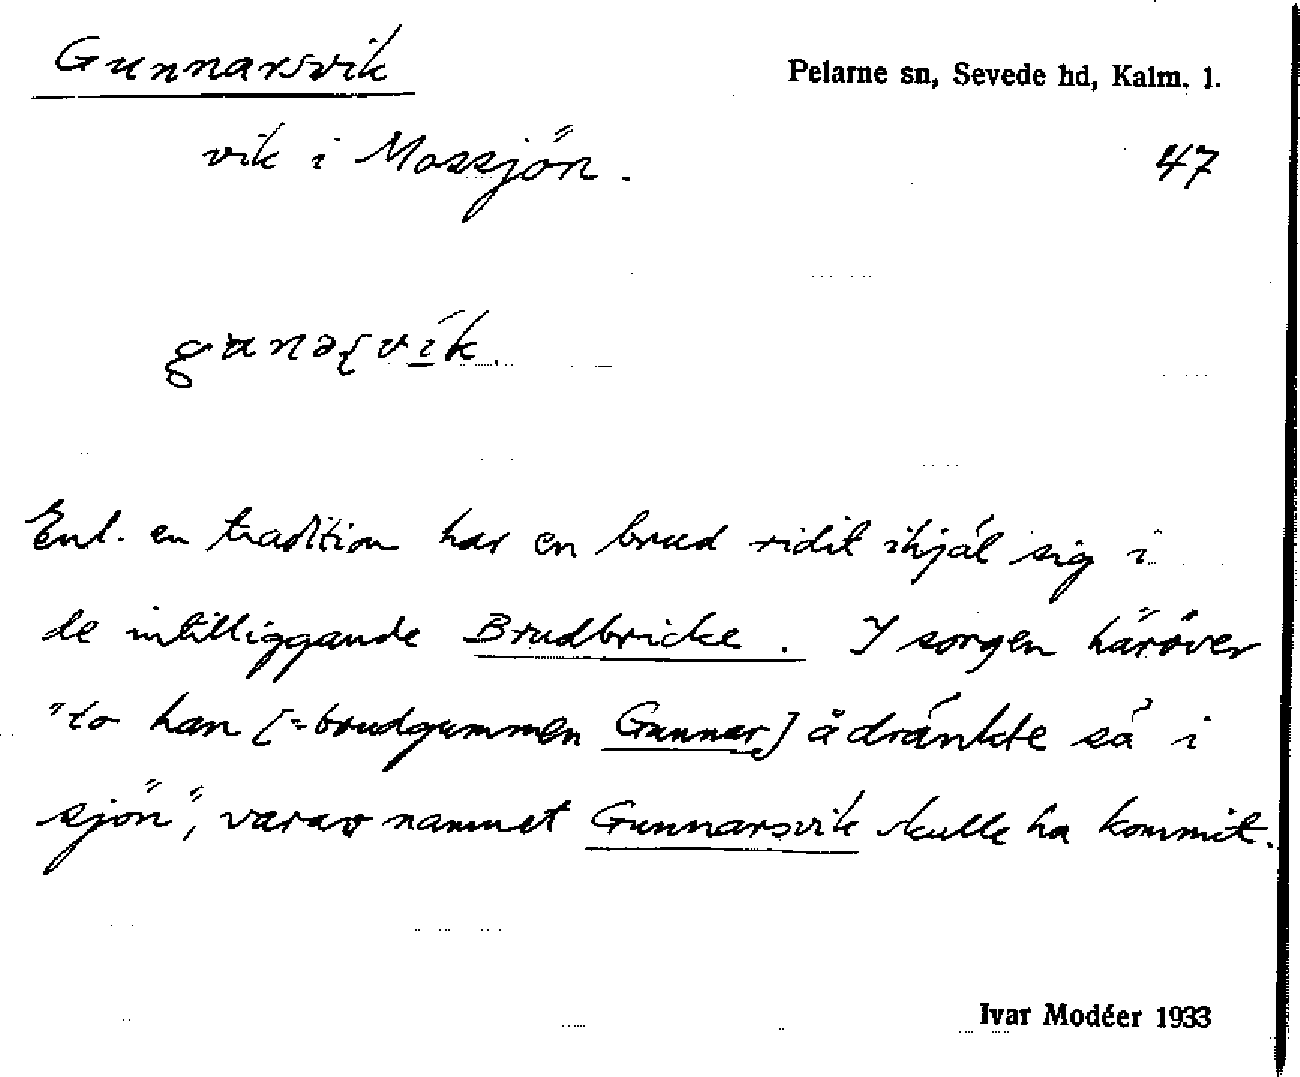 Gunnarsvik
Pelarne sn, Sevede hd, Kalm. l.
vik i Mossjön.
47
Enl. en tradition har en brud ridit ihjäl sig i
de intilliggande Brudbricke. I sorgen häröver
"to han [=brudgummen Gunnar] å dränkte sä i
sjön", varav namnet Gunnarsvik skulle ha kommit.
Ivar Modéer 1933